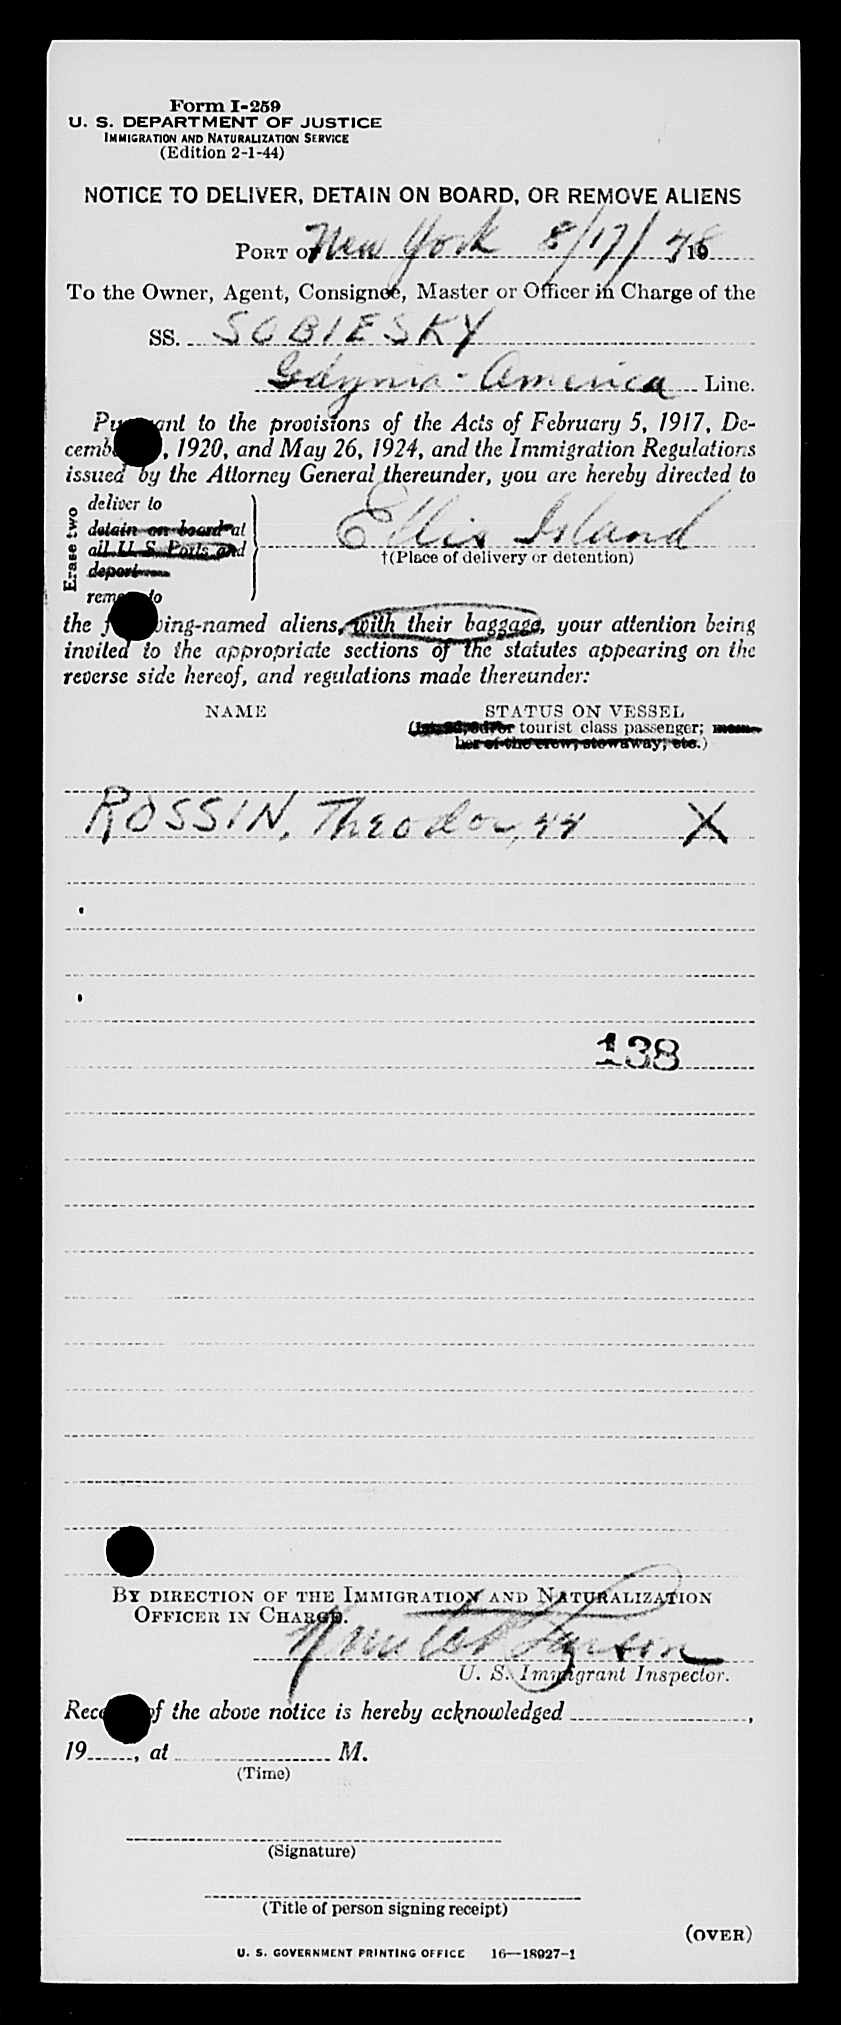 Form I-259
U. S. DEPARTMENT OF JUSTICE
IMMIGRATION AND NATURALIZATION SERVICE
(Edition 2-1-44)
NOTICE TO DELIVER, DETAIN ON BOARD, OR REMOVE ALIENS
PORT OF New York 8/17/48, 19
To the Owner, Agent, Consignee, Master or Officer in Charge of the
SS. SOBIESKY
Gdynia-America Line.
to the provisions of the Acts of February 5, 1917, De-
, 1920, and May 26, 1924, and the Immigration Regulations
issued by the Attorney General thereunder, you are hereby directed to
Erase two
deliver to
detain on board at
all U. S. Ports and
deport
to
Ellis Island
†(Place of delivery or detention)
the aliens, with their baggage, your attention being
invited to the appropriate sections of the statutes appearing on the
reverse side hereof, and regulations made thereunder:
NAME
STATUS ON VESSEL
tourist class passenger; mem-
ber of the crew; stowaway; etc.)
ROSSIN, Theodor, 44 X
138
BY DIRECTION OF THE IMMIGRATION AND NATURALIZATION
OFFICER IN CHARGE.
U. S. Immigrant Inspector.
of the above notice is hereby acknowledged ,
19 , at M.
(Time)
(Signature)
(Title of person signing receipt)
(OVER)
U. S. GOVERNMENT PRINTING OFFICE 16—18927-1